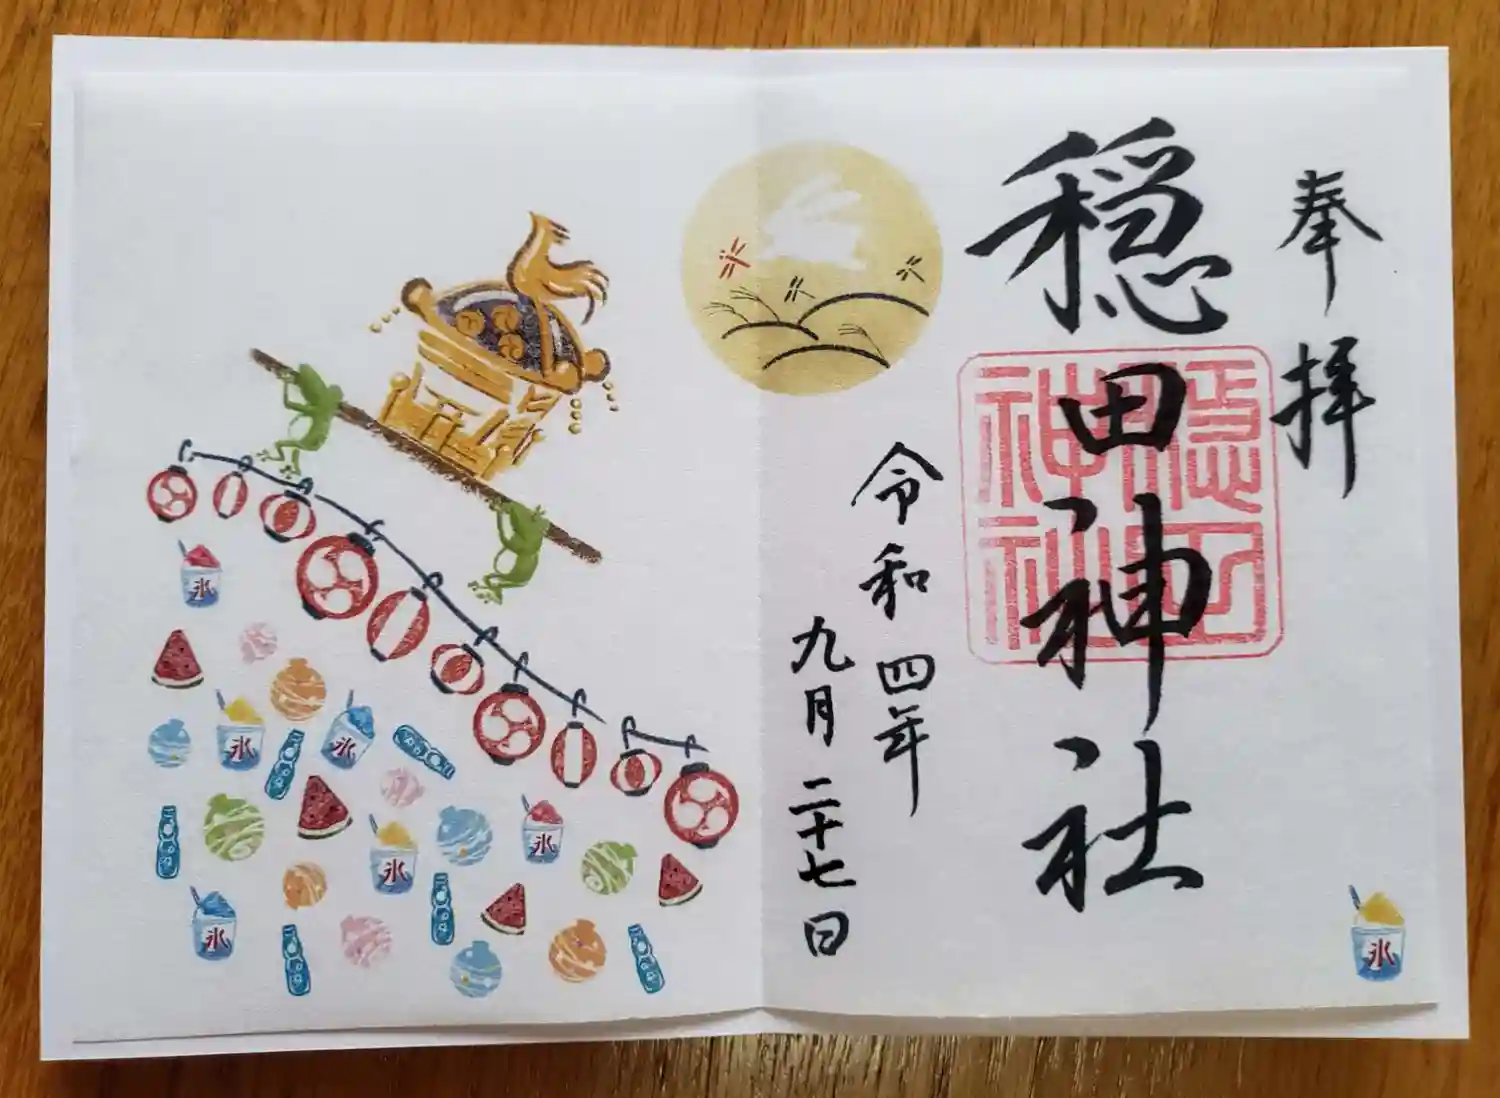 奉拝
穏田神社
穏田
神社
令和四年
九月二十七日
氷
氷
氷
氷
氷
氷
氷